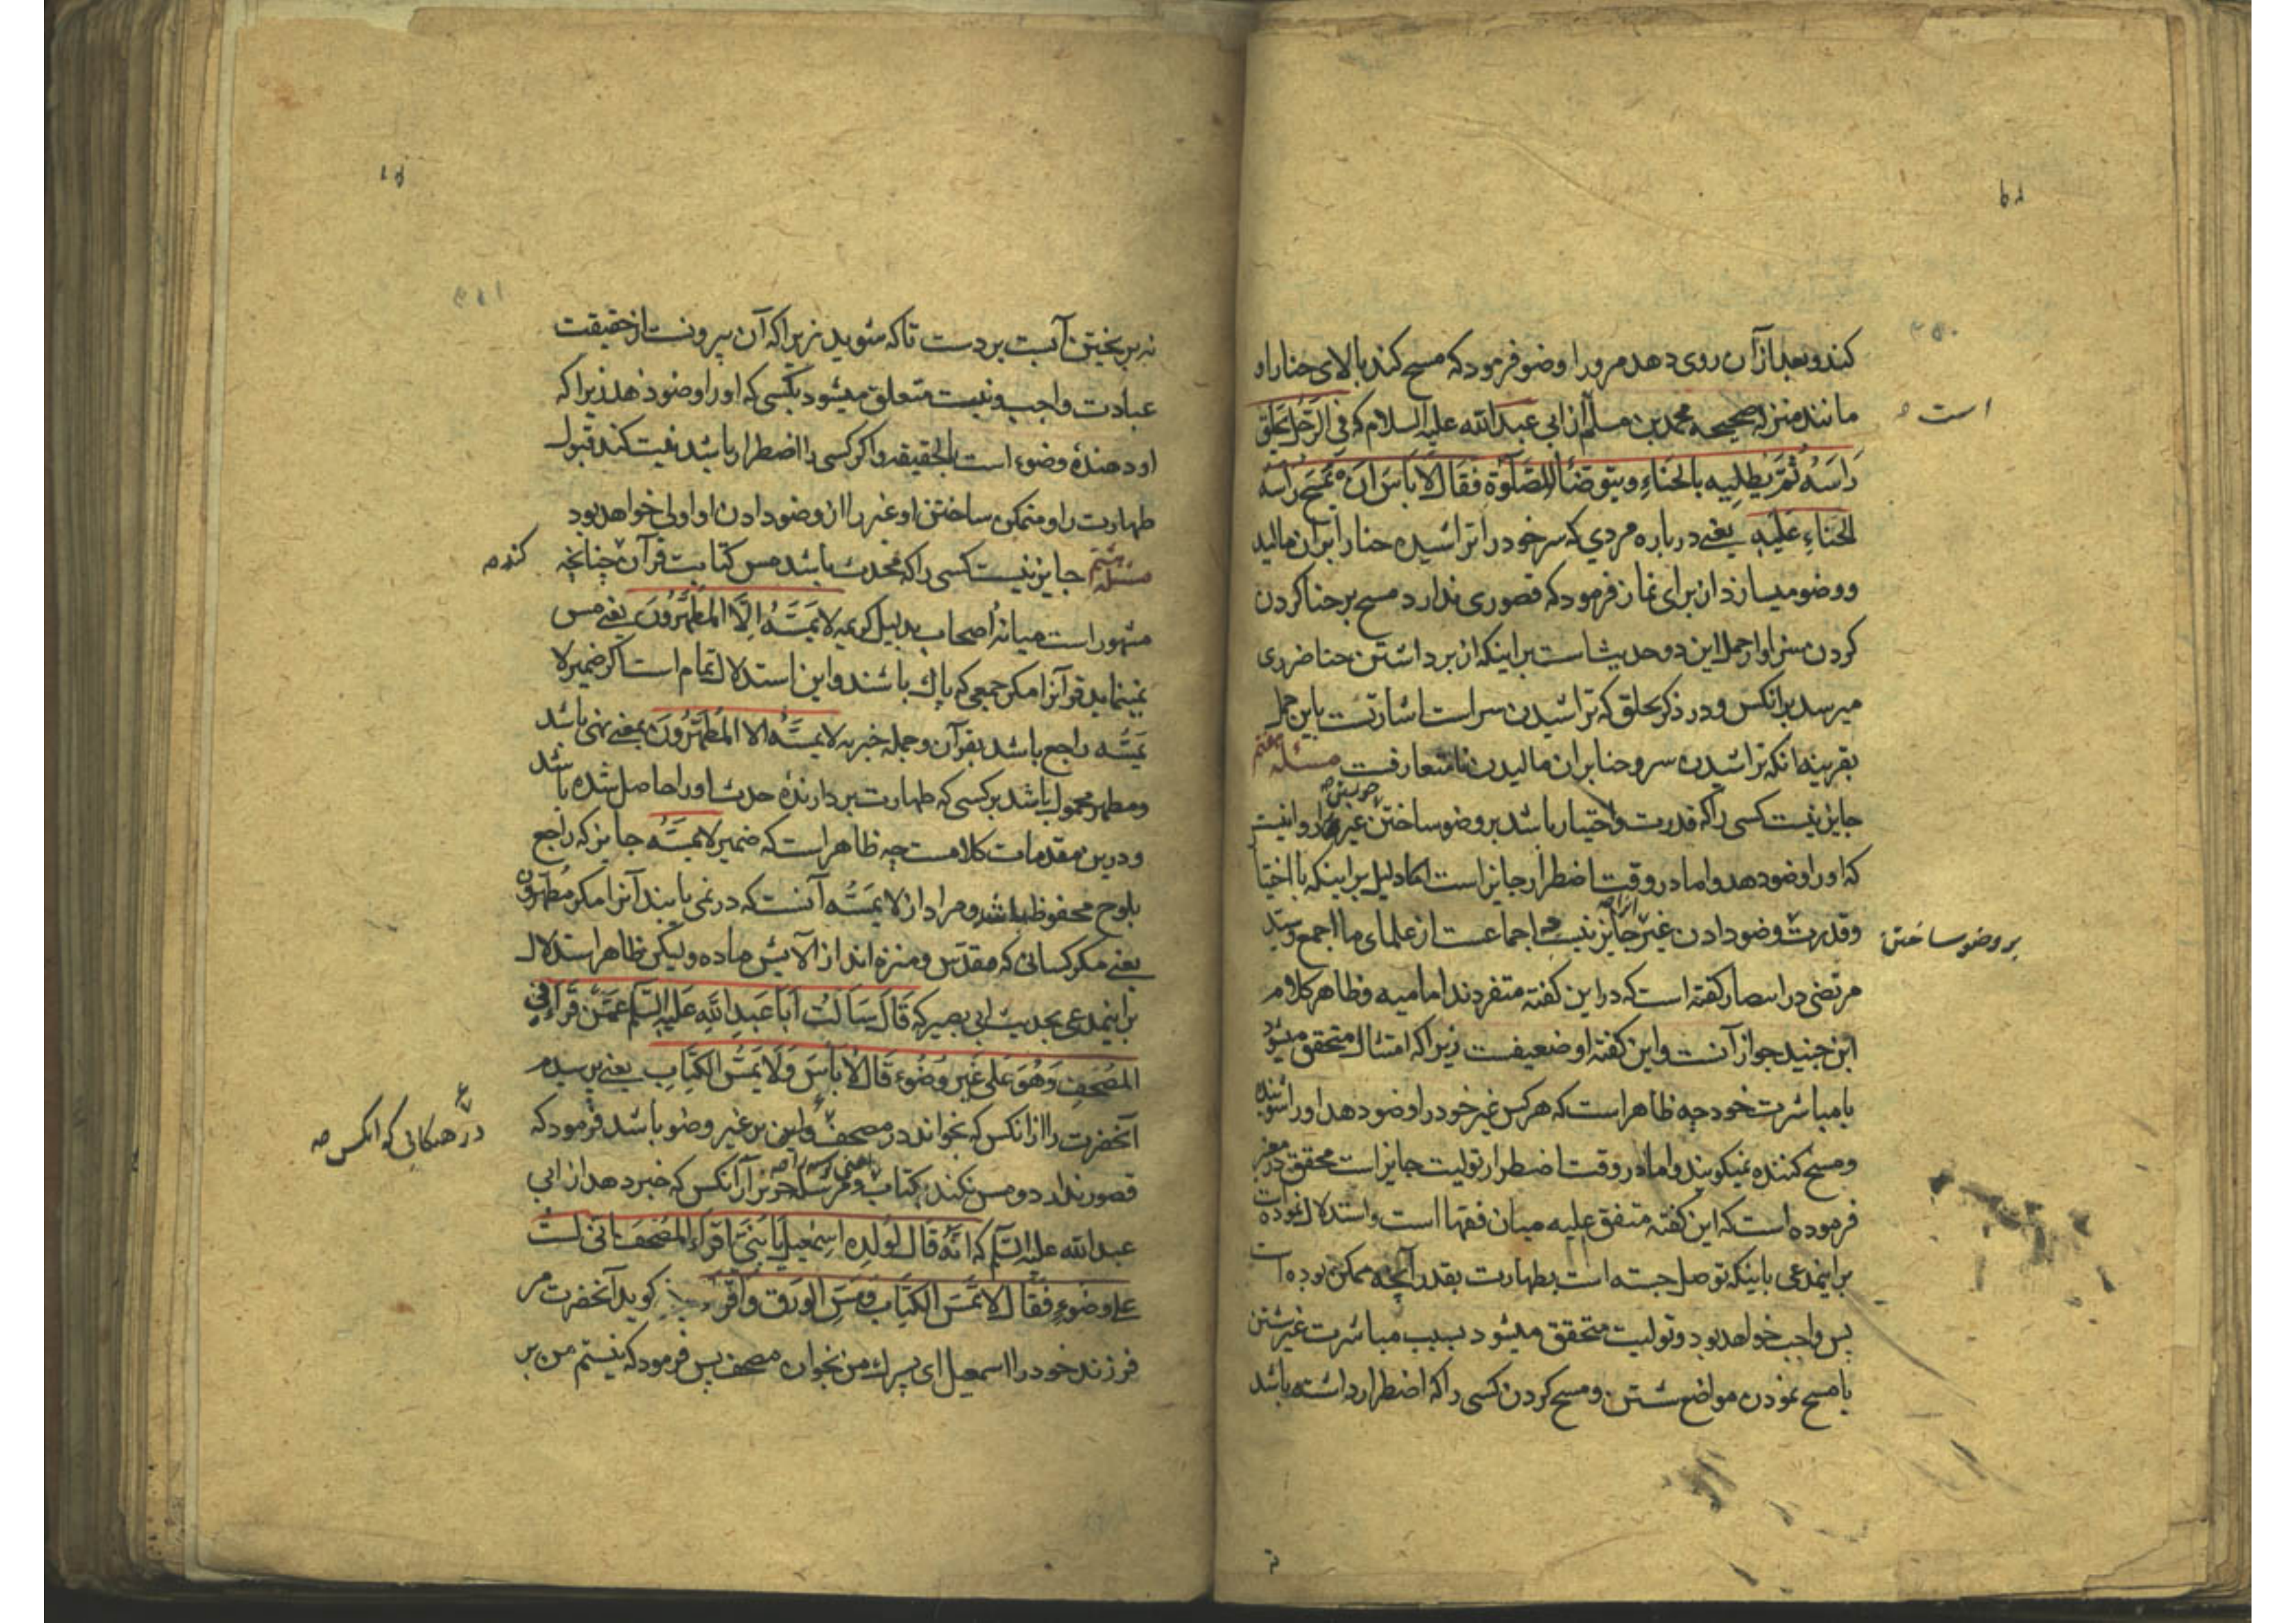 کند و بعد از آن روی دهد مر او را وضو فرمود که مسح کند بالای حنا را و
مانند صحیحه محمد بن مسلم از ابی عبد الله علیه السلام که فی الرَّجُل یَحلِق
است
رَاسَهُ ثُمَّ یَطلِیهِ بالحنّاءِ ویتوضّأ للصّلوٰة فقال لا بأس ان یَمسَحَ رأسه
الحنّاءِ عَلَیهِ یعنے درباره مردی که سر خود را تراشیده حنا را بر آن مالید
و وضو میسازد از برای نماز فرمود که قصوری ندارد مسح بر حنا کردن
کردن این دو حدیث است بر اینکه از برداشتن حنا ضرری
میرسد بر انکس و در ذکر یحلق که تراشیدن سر است اشارتست باین حمل
بقرینه انکه تراشیدن سر و حنا بر ان مالیدن نامتعارفست مسئله هفتم
جایز نیست کسی را که قدرت و اختیار باشد بر وضو ساختن غیر
که او را وضو دهد و اما در وقت اضطرار جایز است اما دلیل بر اینکه با اختیا
و قدرت وضو دادن غیر جایز نیست اجماعست از علمای ما اجمع و سید
بر وضو ساختن
مرتضی در گفته است که در این گفته متفردند امامیه و ظاهر کلام
ابن جنید جواز آنست و این گفته او ضعیفست زیرا که امتثال متحقق میشود
بامباشرت خود چه ظاهر است که هر کس غیر خود را وضو دهد او را شوینده
و مسح کننده نمیگویند و اما در وقت اضطرار تولیت جایز است محقق در معتبر
فرموده است که این گفته متفق علیه میان فقها است و استدلال نموده است
بر اینمدعی باینکه توصل جسته است بطهارت بقدر آنچه ممکن بوده است
پس واجب خواهد بود و تولیت متحقق میشود بسبب مباشرت غیر شستن
یا مسح نمودن مواضع شستن و مسح کردن کسی را که اضطرار داشته باشد
نه بریختن آبست بر دست تا که بشوید زیرا که آن بیرونست از حقیقت
عبادت واجب و نیت متعلق میشود بکسی که او را وضو دهند زیرا که
او دهندهٔ وضوء است بالحقیقه و اگر کسی را اضطرار باشد نیت کند قبول
طهارت را و متمکن ساختن او غیر را از وضو دادن او اولی خواهد بود
مسئله هشتم جایز نیست کسی را که محدث باشد مس کتابت قرآن چنانچه
مشهور است میانه اصحاب بدلیل کریمه لا یَمَسُّهُ اِلَّا المُطَهَّرُونَ یعنے مس
نمینماید قرآنرا مکر جمعی که پاك باشند و این استدلال تمام است اگر ضمیر لا
یَمَسُّه راجع باشد بقرآن و جمله خبریه لا یَمَسُّهُ الا المُطَهَّرُونَ بمعنے نهی باشد
و مطهر محمول باشد بر کسی که طهارت بردارندهٔ حدث او را حاصل شده باشد
و درین مقدمات کلامست چه ظاهر است که ضمیر لا یَمَسُّه جایز که راجع
بلوح محفوظ باشد و مراد از لا یَمَسُّه آنست که در نمی یابند آنرا مکر مُطَهَّرُون
یعنے مکر کسانی که مقدّس و منزه اند از آلایش ماده و لیکن ظاهر استدلال
بر اینمدعی بحدیث ابی بصیر که قَالَ سَاَلتُ اَبَا عَبدِ اللهِ عَلَیهِ السَّلم عَمَّن قَرَأ فِی
المُصحَفِ وَهُوَ عَلَی غَیرِ وُضُوء قَالَ لَا بَأسَ وَلَا یَمَسُّ الکِتَابِ یعنے پرسیدم
آنحضرت را از انکس که بخواند در مصحف و این بر غیر وضو باشد فرمود که
قصور ندارد و مس نکند کتاب و مرسله حریز از آنکس که خبر دهد از ابی
عبد الله علیه السّلم که انَّهُ قَالَ لِوَلَدِه اِسمٰعیل یَا بُنَیَّ اِقرَاء المُصحَفَ انّی لستُ
علے وضوءٍ فَقَال لا تَمَسَّ الکِتَابَ وَمَسَّ الوَرَق وَاقرَأ کوید آنحضرت مر
فرزند خود را اسمعیل ای پسرك من بخوان مصحف پس فرمود که نیستم من بر